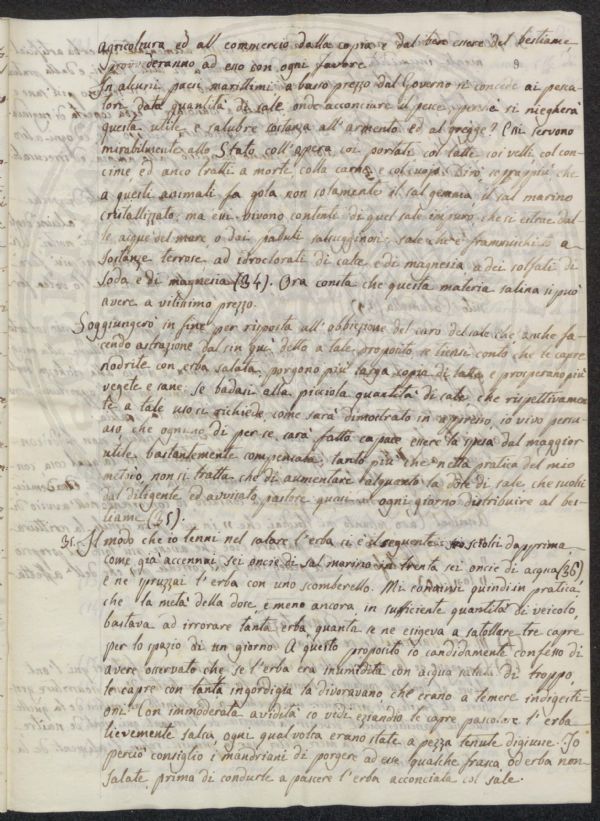 agricoltura ed all commercio dalla copia e dal bene essere del bestiame
provvederanno ad esso con ogni favore.
In alcuni paesi marittimi a basso prezzo dal Governo si concede ai pesca-
tori data quantità di sale, onde acconciare il pesce, perché si niegherà
questa utile e salubre sostanza all'armento ed al gregge? Essi servono
mirabilmente allo Stato coll'opera coi portati col latte coi velli col con-
cime ed anco tratti a morte colla carne e col cuojo. Dirò che
a questi animali fa gola non solamente il sal gemma il sal marino
cristallizzato, ma essi vivono contenti di quel sale impuro che si estrae dal-
le acque del mare o dai paduli salsugginosi, sale che è frammischiato a
sostanze terrose ad idroclorati di calce e di magnesia e dei solfati di
soda e di magnesia (34). Ora consta che questa materia salina si può
avere a vilissimo prezzo.
Soggiungerò in fine per risposta all'obbiezione del caro del sale che anche fa-
cendo astrazione dal sin qui detto a tale proposito, se tiensi conto che le capre
nodrite con erba salata, porgono più larga copia di latte e prosperano più
vegete e sane: se badasi alla picciola quantità di sale che rispettivamen-
te a tale uso si richiede come sarà dimostrato in appresso, io vivo persu-
aso che ognuno di per se sarà fatto capace essere la spesa dal maggior
utile bastantemente compensata; tanto più che nella pratica del mio
metodo, non si tratta che di aumentare alquanto la dote di sale che suolsi
dal diligente ed avvisato pastore quasi ogni giorno distribuire al bes-
tiame (35).
31. Il modo che io tenni nel salare l'erba si è il seguente: io sciolsi dapprima,
come già accennai sei oncie di sal marino in trenta sei oncie di acqua (36)
e ne spruzzai l'erba con uno scomberello. Mi convinsi quindi in pratica,
che la metà della dose, e meno ancora, in sufficiente quantità di veicolo,
bastava ad irrorare tanta erba quanta se ne esigeva a satollare tre capre
per lo spazio di un giorno. A questo proposito io candidamente confesso di
avere osservato che se l'erba era inumidita con acqua salata di troppo,
le capre con tanta ingordigia la divoravano che erano a temere indigesti-
oni. Con immoderata avidità io vidi eziandio le capre pascolare l'erba
lievemente salsa, ogni qual volta erano state a pezza tenute digiune. Io
perciò consiglio i mandriani di porgere ad esse qualche frasca od erba non
salate, prima di condurle a pascere l'erba acconciata col sale.